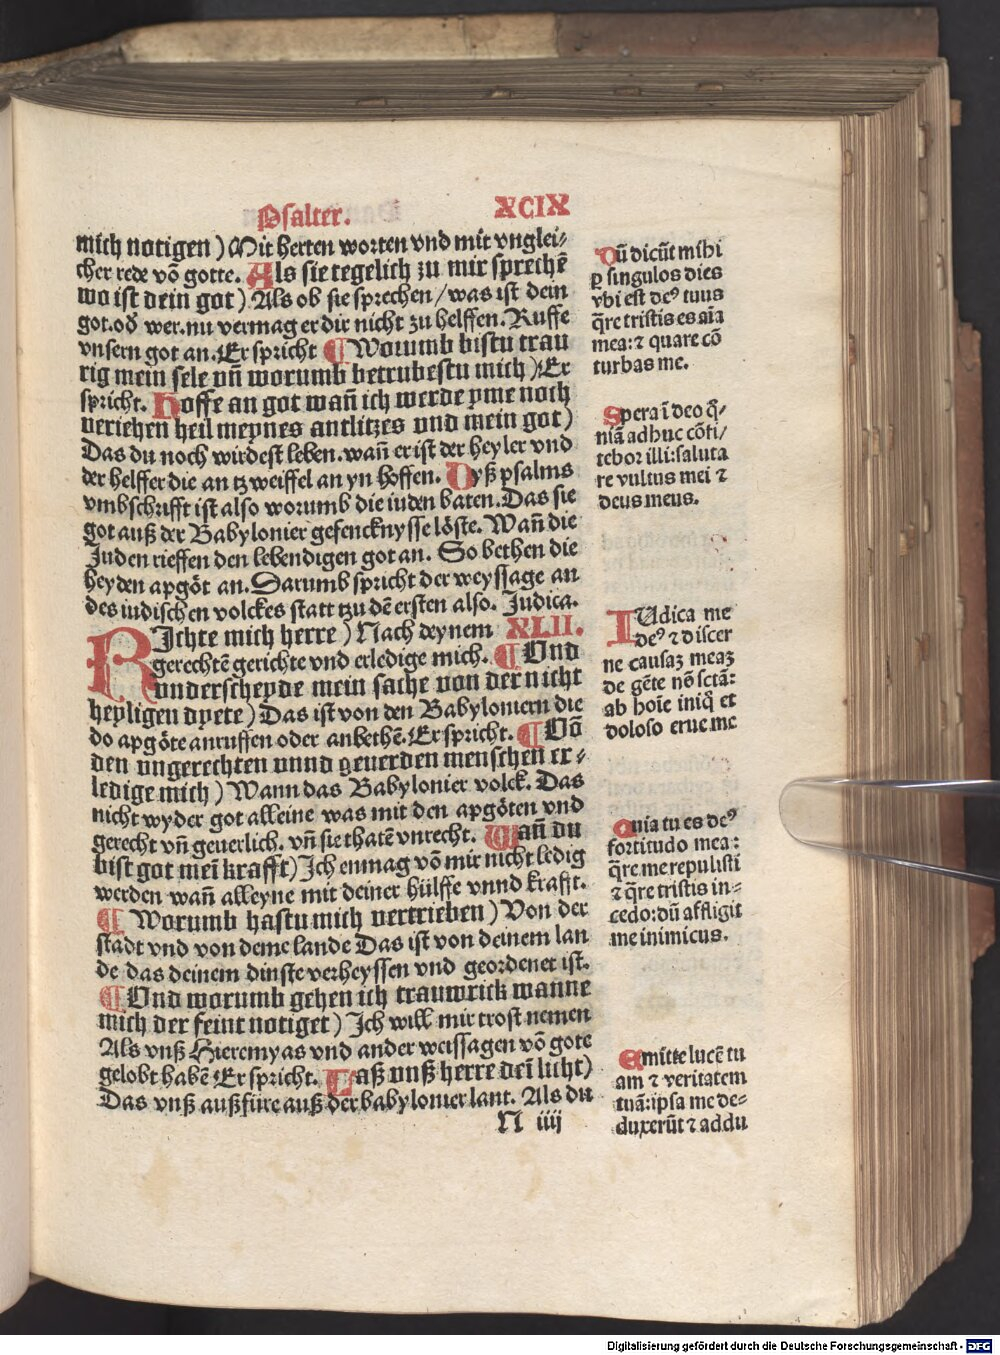 Psalter. XCIX
mich notigen) Mit herten worten vnd mit vnglei⸗
cher rede võ gotte. Als sie tegelich zu mir sprechẽ
wo ist dein got) Als ob sie sprechen / was ist dein
got. od̕ wer. nu vermag er dir nicht zu helffen. Ruffe
vnsern got an. Er spricht ¶ Worumb bistu trau
rig mein sele vñ worumb betrubestu mich) Er
spricht. Hoffe an got wañ ich werde yme noch
veriehen heil meynes antlitzes vnd mein got)
Das du noch wirdest leben. wañ er ist der heyler vnd
der helffer die an tzweiffel an yn hoffen. Dyß psalms
vmbschrifft ist also worumb die iuden baten. Das sie
got auß der Babylonier gefencknysse löste. Wañ die
Juden rieffen den lebendigen got an. So bethen die
heyden apgöt an. Darumb spricht der weyssage an
des iudischen volckes statt tzu dẽ ersten also. Judica.
RIchte mich herre) Nach deynem XLII.
gerechtẽ gerichte vnd erledige mich. ¶ Vnd
vnderscheyde mein sache von der nicht
heyligen dyete) Das ist von den Babyloniern die
do apgöte anruffen oder anbethẽ. Er spricht. ¶ Võ
den vngerechten vnnd geuerden menschen er⸗
ledige mich) Wann das Babylonier volck. Das
nicht wyder got alleine was mit den apgöten vnd
gerecht vñ geuerlich. vñ sie thatẽ vnrecht. Wañ du
bist got mei krafft) Ich enmag võ mir nicht ledig
werden wañ alleyne mit deiner hülffe vnnd krafft.
¶ Worumb hastu mich vertrieben) Von der
stadt vnd von deme lande Das ist von deinem lan
de das deinem dinste verheyssen vnd geordenet ist.
¶ Vnd worumb gehen ich trauwrick wanne
mich der feint notiget) Ich will mir trost nemen
Als vnß Hieremyas vnd ander weissagen võ gote
gelobt habẽ Er spricht. Laß vnß herre dei licht)
Das vnß außfüre auß der babylonier lant. Als du
N iiij
Dũ dicũt mihi
ꝑ singulos dies
vbi est deꝰ tuus
q̃re tristis es aĩa
mea: ⁊ quare cõ
turbas me.
Spera ĩ deo qm̃
niã adhuc cõfi/
tebor illi: saluta
re vultus mei ⁊
deus meus.
IUdica me
deꝰ ⁊ discer
ne causaꝫ meaꝫ
de gẽte nõ sctã:
ab hoĩe iniq̃ et
doloso erue me
Quia tu es deꝰ
fortitudo mea:
q̃re me repulisti
⁊ q̃re tristis in⸗
cedo: dũ affligit
me inimicus.
Emitte lucẽ tu
am ⁊ veritatem
tuã: ipsa me de⸗
duxerũt ⁊ addu
Digitalisierung gefördert durch die Deutsche Forschungsgemeinschaft - DFG